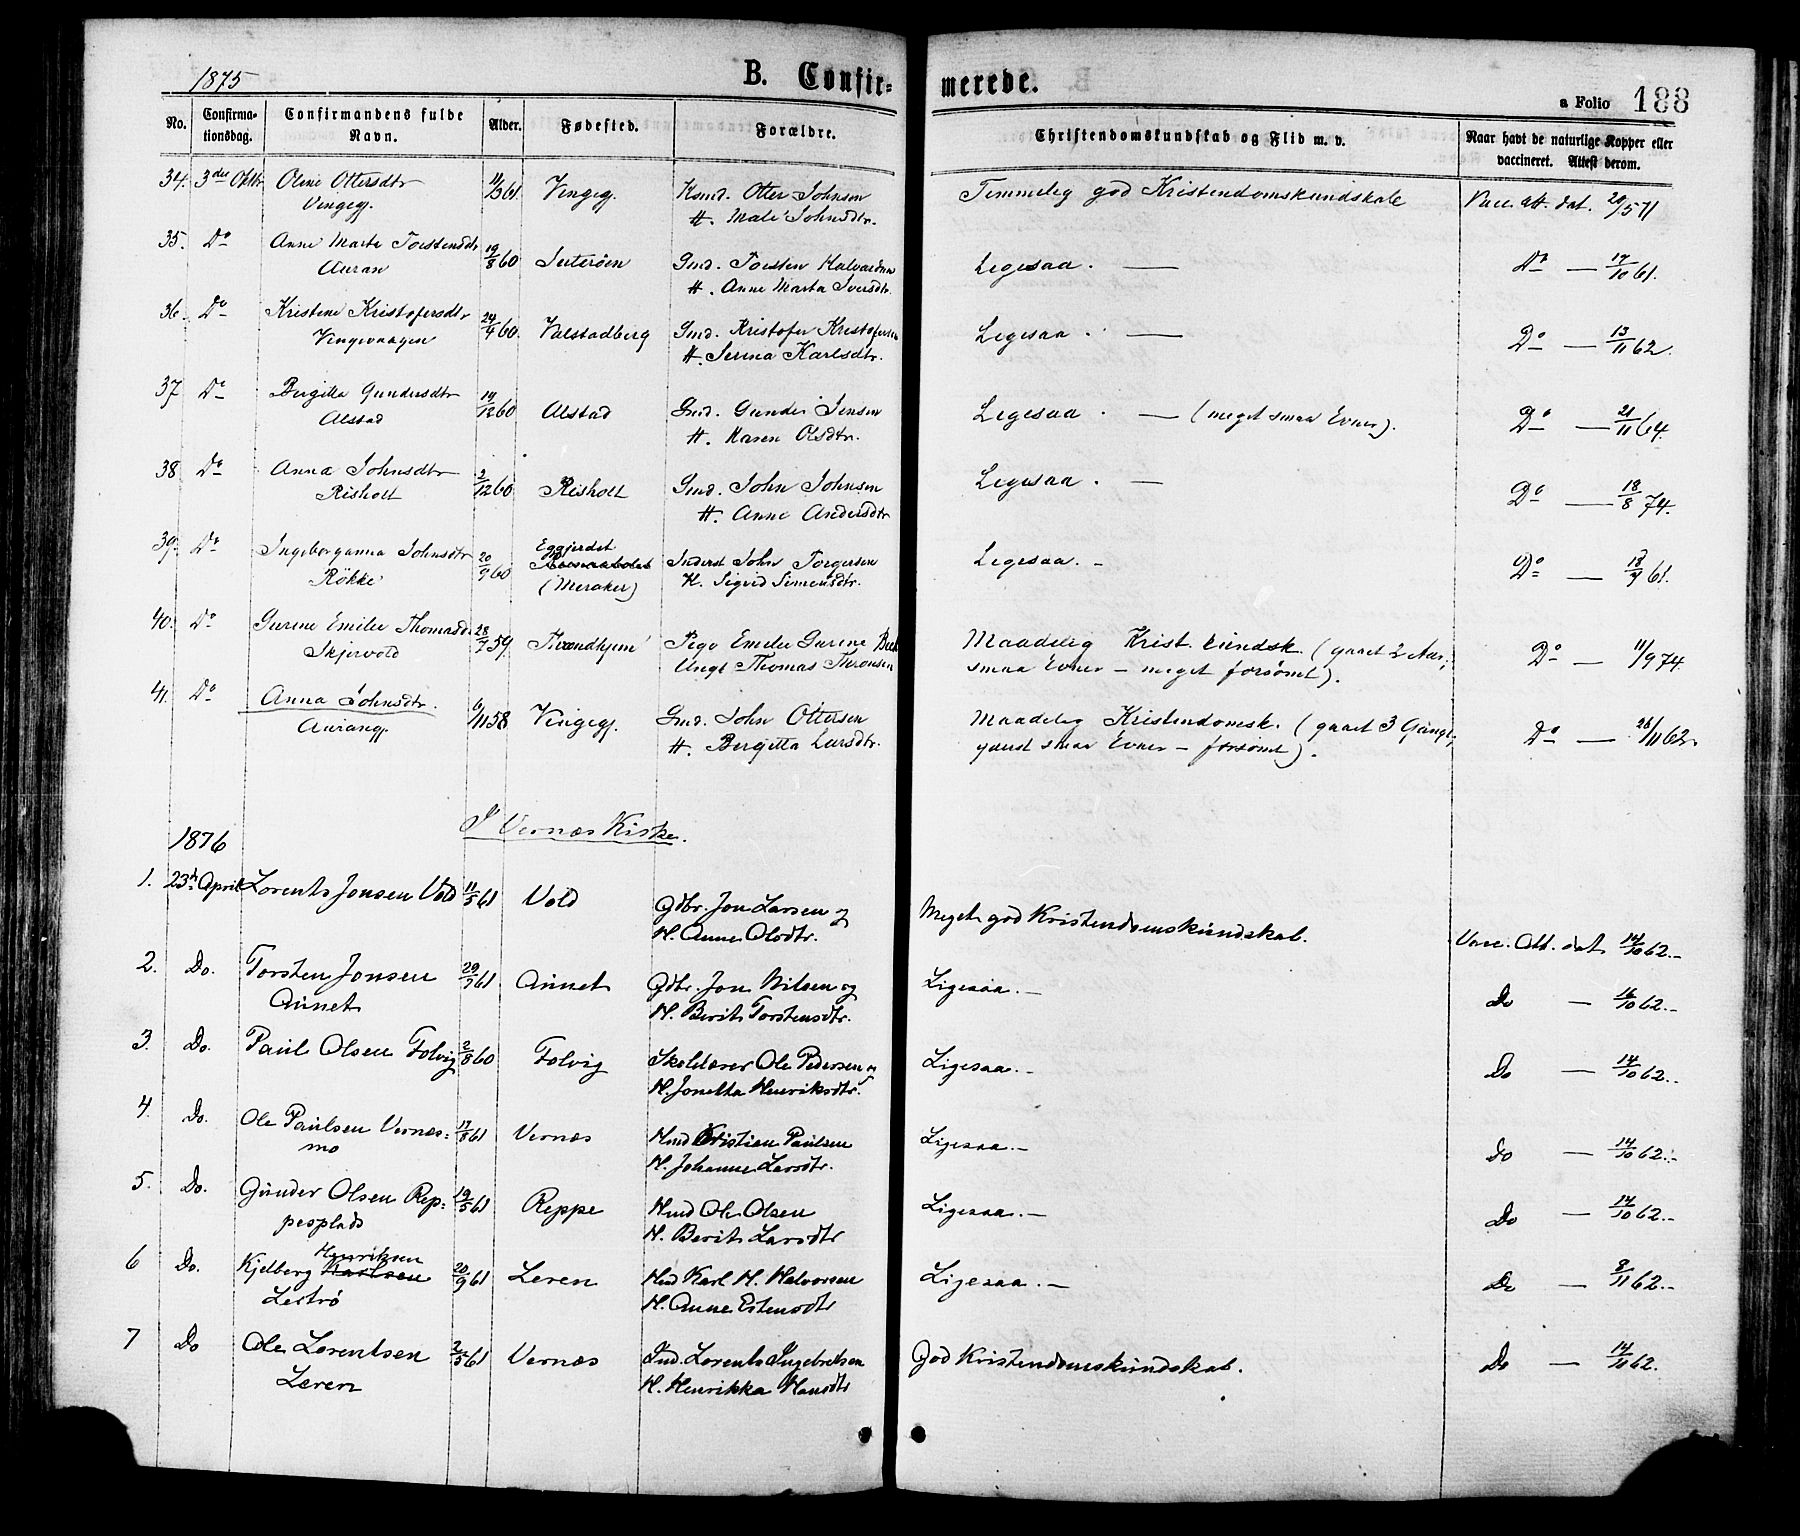 1875 B. Confir- merede. a Folio 188
No. Confirma-tionsdag. Confirmandens fulde Navn. Alder. Fødested. Forældre. Christendomskundskab og Flid m. v. Naar havt de naturlige Kopper eller vaccineret. Attest derom.
34. 3die Oktbr Oline Ottersdtr 11/3 61 Vingegj. Ksmd. Otter Johnsen Temmelig god Kristendomskundskab Vacc. att. dat. 20/5 71
Vingegj. H. Male Johnsdtr.
35. Do Anne Marta Torstensdtr 19/8 60 Suterøen Gmd. Torsten Halvardsen Ligesaa. — Do — 17/10 61.
Auran H. Anne Marta Iversdtr.
36. Do Kristine Kristofersdtr 24/4 60 Valstadberg Gmd. Kristofer Kristofersen Ligesaa. — Do — 13/11 62.
Vingevaagen H. Serina Karlsdtr.
37 Do Bergitta Gundersdtr 14/12 60 Alstad Gmd. Gunder Jensen Ligesaa. — (meget smaa Evner). Do — 21/11 64.
Alstad H. Maren Olsdtr.
38 Do Anna Johnsdtr 2/12 60 Risholt Gmd. John Johnsen Ligesaa. — Do — 18/8 74.
Risholt H. Anne Andersdtr
39. Do Ingeborganna Johnsdtr 20/9 60 Eggjerdet Inderst John Torgersen Ligesaa. - Do — 18/9 61.
Røkke (Meraker) H. Sigrid Simonsdtr.
40. Do Gurine Emilie Thomasd. 28/7 59. Throndhjem Pige Emelie Gurine Beck Maadelig Krist. kundsk. (gaaet 2 Aar; Do — 11/9 74.
Skjervold Ungk. Thomas Thronsen smaa Evner — meget forsømt).
41. Do Anna Johnsdtr. 6/11 58 Vingegj. Gmd. John Ottersen Maadelig Kristendomsk. (gaaet 3 Gange, Do — 26/11 62.
Aurangj. H. Bergitta Larsdtr. yderst smaa Evner — forsømt).
1876 I Vernæs Kirke.
1. 23de April Lorents Jonsen Vold 11/5 61 Vold Gdbr. Jon Larsen og Meget god Kristendomskundskab. Vacc. Att. dat. 14/10 62.-
H. Anne Olsdtr.
2. Do. Torsten Jonsen 29/7 61 Aunet Gdbr. Jon Nilsen og Ligesaa.- Do — 16/10 62.-
Aunet H. Berit Torstensdtr.
3. Do. Paul Olsen Folvig 2/8 60 Folvig Skolelærer Ole Pedersen og Ligesaa.- Do — 14/10 62.-
H. Jonetta Henriksdtr.
4. Do. Ole Paulsen Vernæs- 17/8 61 Vernæs Hmd Kristian Paulsen Ligesaa.- Do — 14/10 62.-
mo H. Johanne Larsdtr.
5. Do. Gunder Olsen Rep- 19/5 61 Reppe Hmd Ole Olsen Ligesaa.- Do — 14/10 62.-
pesplads H. Berit Larsdtr
6 Do. Kjelberg Karlsen Henriksen 20/9 61 Leren Hmd Karl H. Halvorsen Ligesaa.- Do — 8/11 62.-
Leirø H. Anne Estensdtr
7 Do Ole Lorentsen 2/5 61 Vernæs Ind. Lorents Ingebretsen God Kristendomskundskab. Do — 14/10 62.
Leren H. Henrikka Hansdtr